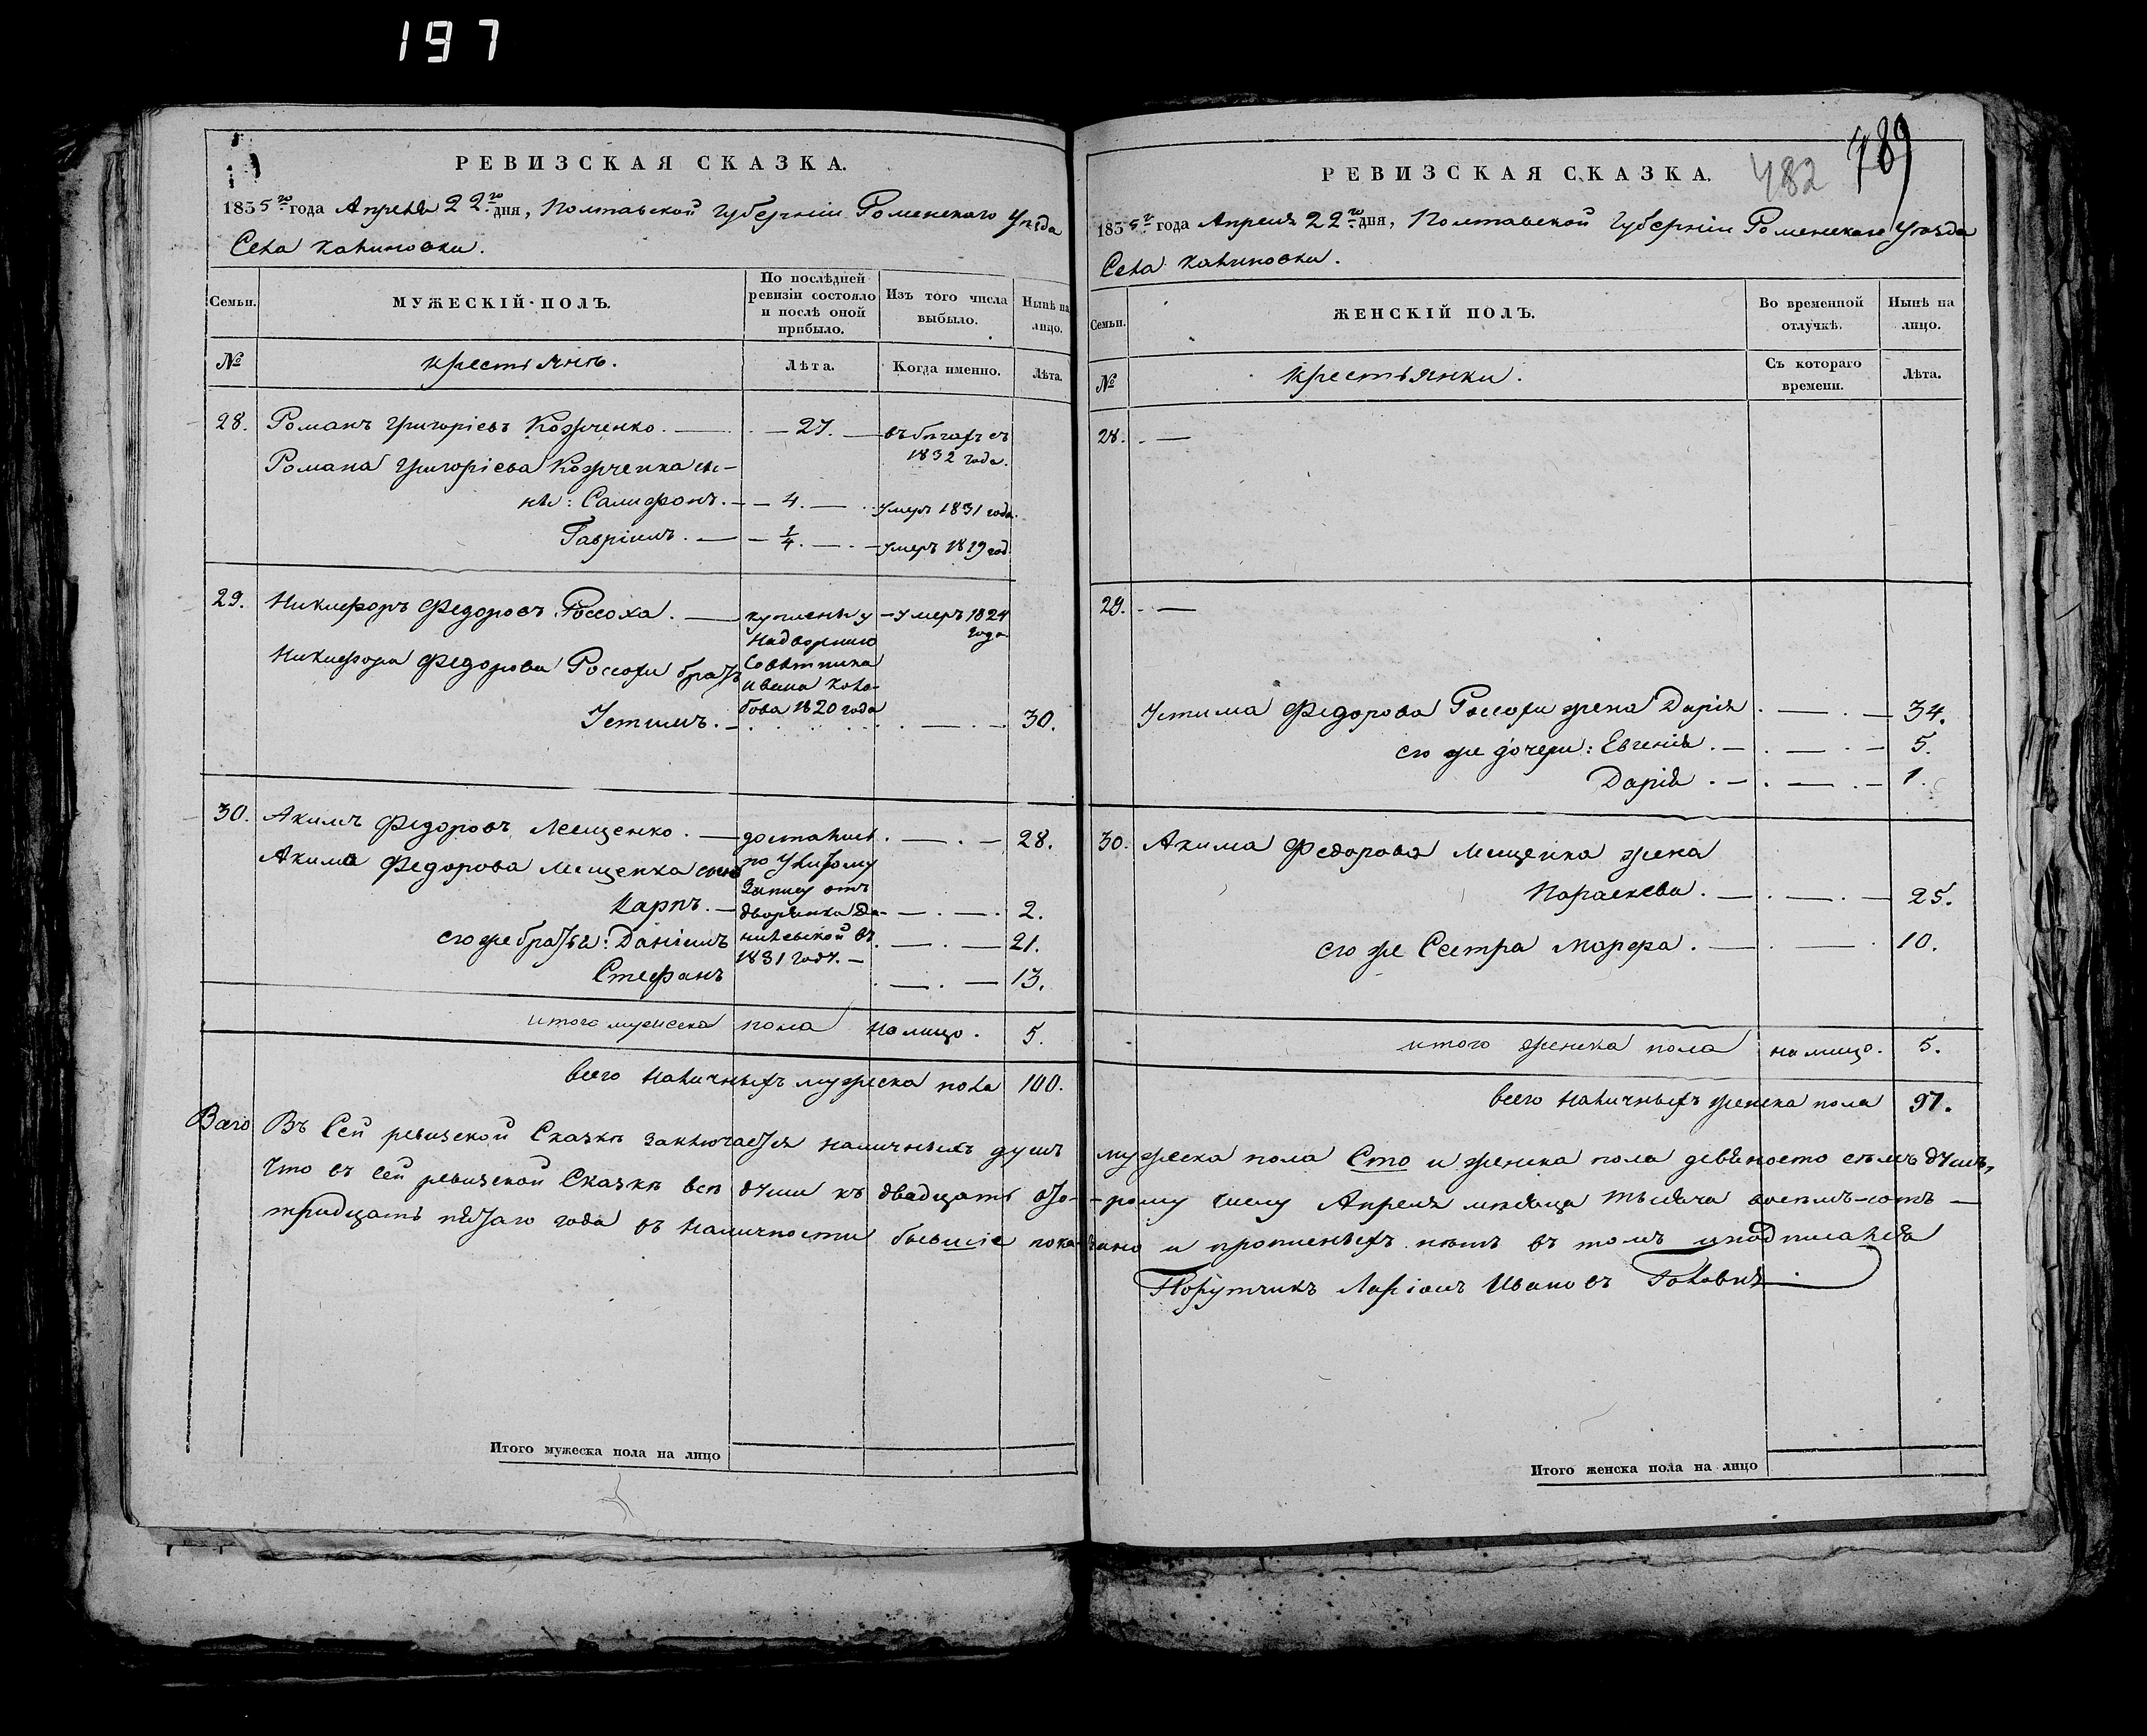 197
РЕВИЗСКАЯ СКАЗКА.
1835го года Апреля 22го дня, Полтавской Губерніи Роменского Уѣзда
Села Калиновки.
Семьи.
МУЖЕСКІЙ ПОЛЪ.
По послѣдней ревизіи состояло и послѣ оной прибыло.
Изъ того числа выбыло.
Нынѣ на лицо.
№
крестьянъ.
Лѣта.
Когда именно.
Лѣта.
28. Романъ Григоріевъ Козченко. — 27. — въ бѣгахъ съ
1832 года.
Романа Григоріева Козченка сы-
нъ: Самифонъ. — 4. — умеръ 1831 года.
Гавріилъ. — ¼. — умеръ 1819 год
29. Никифоръ Федоровъ Россоха. — купленъ у — умеръ 1824
Надворнаго года
Никифора Федорова Россохи братъ Совѣтника
Ивана Коло-
бова 1820 года
Устимъ. — 30.
30. Акимъ Федоровъ Мещенко. — достались — 28.
Акима Федорова Мещенка сынъ по
запису отъ
Карпъ. — дворянки Да- — 2.
его же братья: Даніилъ нилевской въ — 21.
1831 году. —
Стефанъ — 13.
итого мужеска пола на лицо. 5.
всего наличныхъ мужеска пола 100.
Въ Сей ревизской Сказкѣ заключается наличныхъ душъ
Что въ сей ревизской Сказкѣ всѣ души къ двадцать вто-
тридцать пятаго года въ наличности бывшіе пока-
Итого мужеска пола на лицо
482 489
РЕВИЗСКАЯ СКАЗКА.
1835г года Апреля 22го дня, Полтавской Губерніи Роменского Уѣзда
Села Калиновки.
Семьи.
ЖЕНСКІЙ ПОЛЪ.
Во временной отлучкѣ.
Нынѣ на лицо.
№
крестьянки.
Съ котораго времени.
Лѣта.
28. —
29. —
Устима Федорова Россохи жена Дарія — 34.
его же дочери: Евгенія. — 5.
Дарія. — 1.
30. Акима Федорова Мещенка жена
Параскева. — 25.
его же Сестра Марфа. — 10.
итого женска пола на лицо. 5.
всего наличныхъ женска пола 97.
мужеска пола Сто и женска пола девяносто семь душъ,
-рому числу Апреля мѣсяца тысяча восемь-сотъ —
зано и прописныхъ нѣтъ въ томъ и подписался
Порутчикъ Ларіонъ Ивановъ
Итого женска пола на лицо